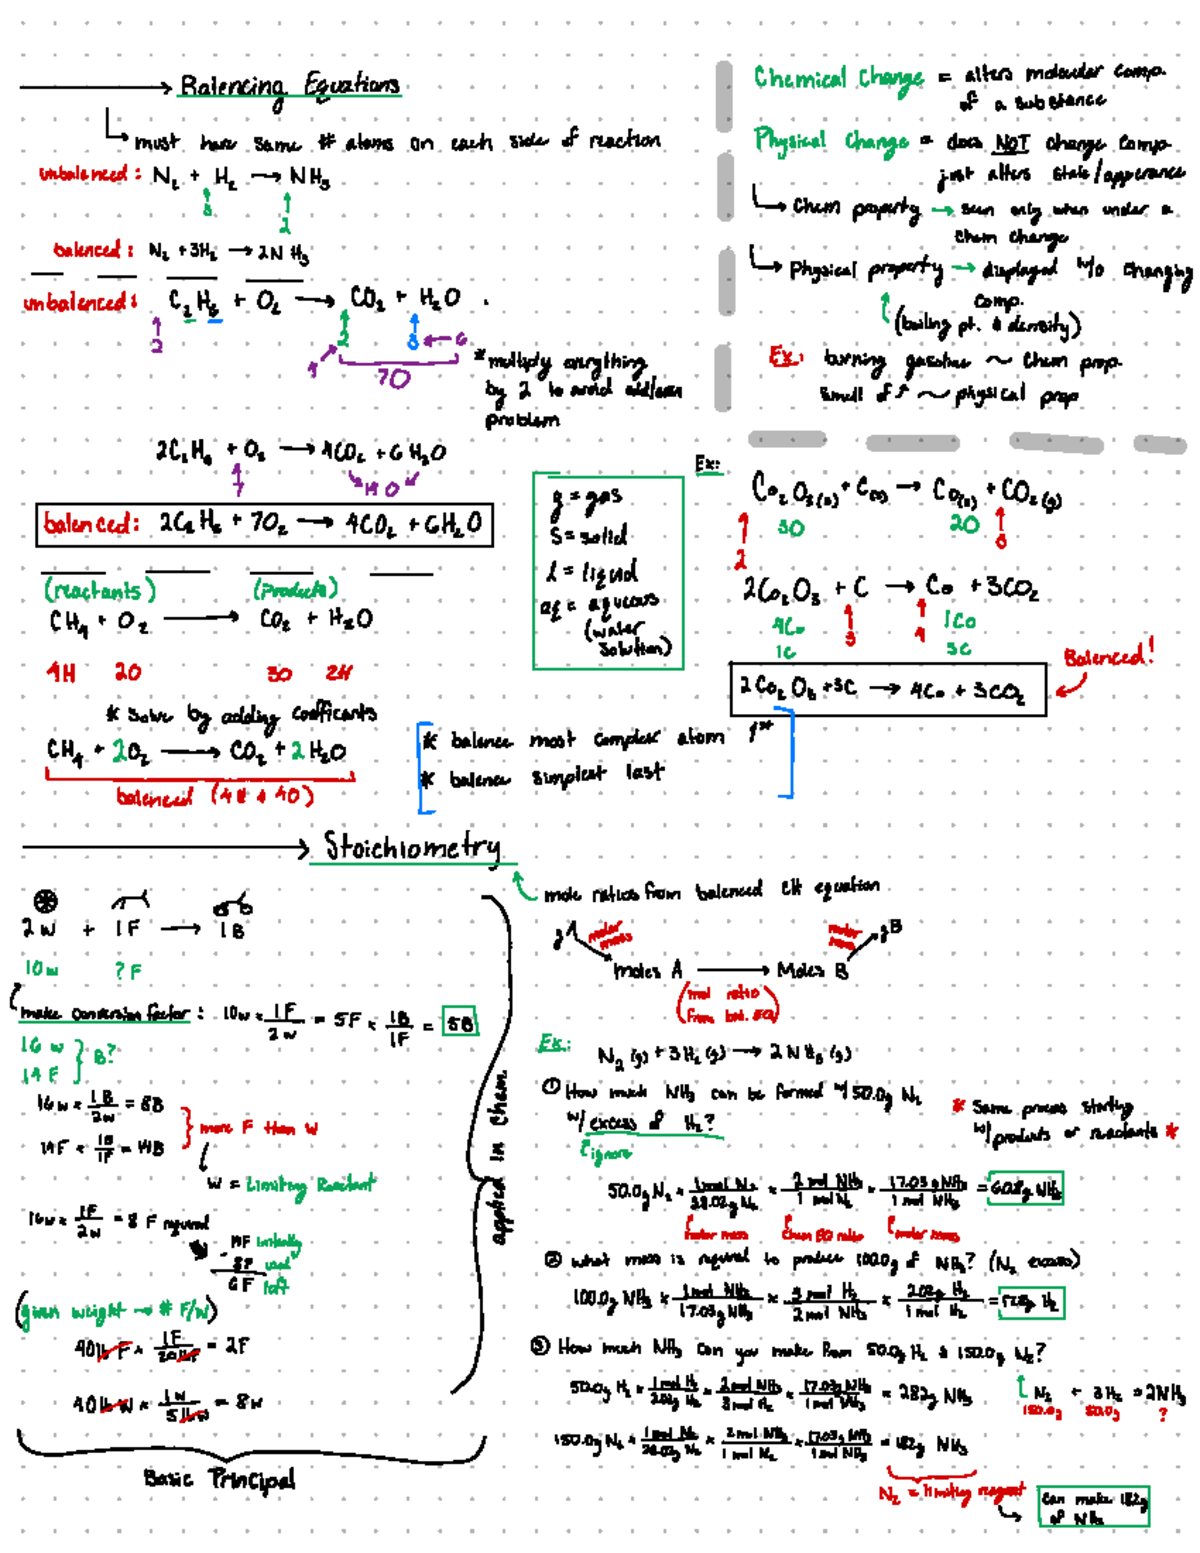 Balencing Equations
must have same # atoms on each side of reaction
unbalenced: N₂ + H₂ → NH₃
3 2
balenced: N₂ + 3H₂ → 2NH₃
unbalenced: C₂H₆ + O₂ → CO₂ + H₂O
2 2 3 6
4
7O
* multiply everything
by 2 to avoid odd/even
problem
2C₂H₆ + O₂ → 4CO₂ + 6H₂O
7 14O
balenced: 2C₂H₆ + 7O₂ → 4CO₂ + 6H₂O
(reactants) (Products)
CH₄ + O₂ → CO₂ + H₂O
4H 2O 3O 2H
* Solve by adding coefficants
CH₄ + 2O₂ → CO₂ + 2H₂O
balenced (4H & 4O)
g = gas
S = solid
l = liquid
aq = aqueous
(water
solution)
* balence most complex atom 1st
* balence simplest last
Chemical Change = alters molecular comp.
of a substance
Physical Change = does NOT change comp
just alters state/apperance
Chem property → seen only when under a
chem change
Physical property → displayed w/o changing
comp.
(boiling pt. & density)
Ex: burning gasoline ~ chem prop.
smell of ↑ ~ physical prop
Ex:
Co₂O₃(s) + C(s) → Co(s) + CO₂(g)
3O 2O 3
2
2Co₂O₃ + C → Co + 3CO₂
4Co 3 4 1Co
1C 3C
2Co₂O₃ + 3C → 4Co + 3CO₂
Balenced!
Stoichiometry
mole ratios from balenced CH equation
2W + 1F → 1B
10w ? F
make conversion factor: 10w × 1F/2w = 5F × 1B/1F = 5B
16 w
14 F } B?
16w × 1B/2w = 8B
14F × 1B/1F = 14B
more F than W
W = Limiting Reactant
16w × 1F/2w = 8 F required
14F initially
- 8F used
6F left
(given weight → # F/W)
40lb F × 1F/20lbF = 2F
40lb W × 1w/5lbw = 8w
Basic Principal
applied in Chem.
gA molar mass molar mass gB
moles A → Moles B
(mol ratio
from bal. EQ)
Ex: N₂(g) + 3H₂(g) → 2NH₃(g)
① How much NH₃ can be formed w/ 50.0g N₂
w/ excess of H₂?
ignore
* Same process starting
w/ products or reactants *
50.0g N₂ × 1mol N₂/28.02g N₂ × 2 mol NH₃/1 mol N₂ × 17.03g NH₃/1 mol NH₃ = 60.8g NH₃
molar mass chem EQ ratio molar mass
② What mass is required to produce 100.0g of NH₃? (N₂ excess)
100.0g NH₃ × 1mol NH₃/17.03g NH₃ × 3 mol H₂/2 mol NH₃ × 2.02g H₂/1 mol H₂ = g H₂
③ How much NH₃ can you make from 50.0g H₂ & 150.0g N₂?
50.0g H₂ × 1mol H₂/2.02g H₂ × 2mol NH₃/3mol H₂ × 17.03g NH₃/1mol NH₃ = 282g NH₃
N₂ + 3H₂ → 2NH₃
150.0g 50.0g ?
150.0g N₂ × 1mol N₂/28.02g N₂ × 2mol NH₃/1 mol N₂ × 17.03g NH₃/1mol NH₃ = 182g NH₃
N₂ = limiting reagent
can make 182g
of NH₃